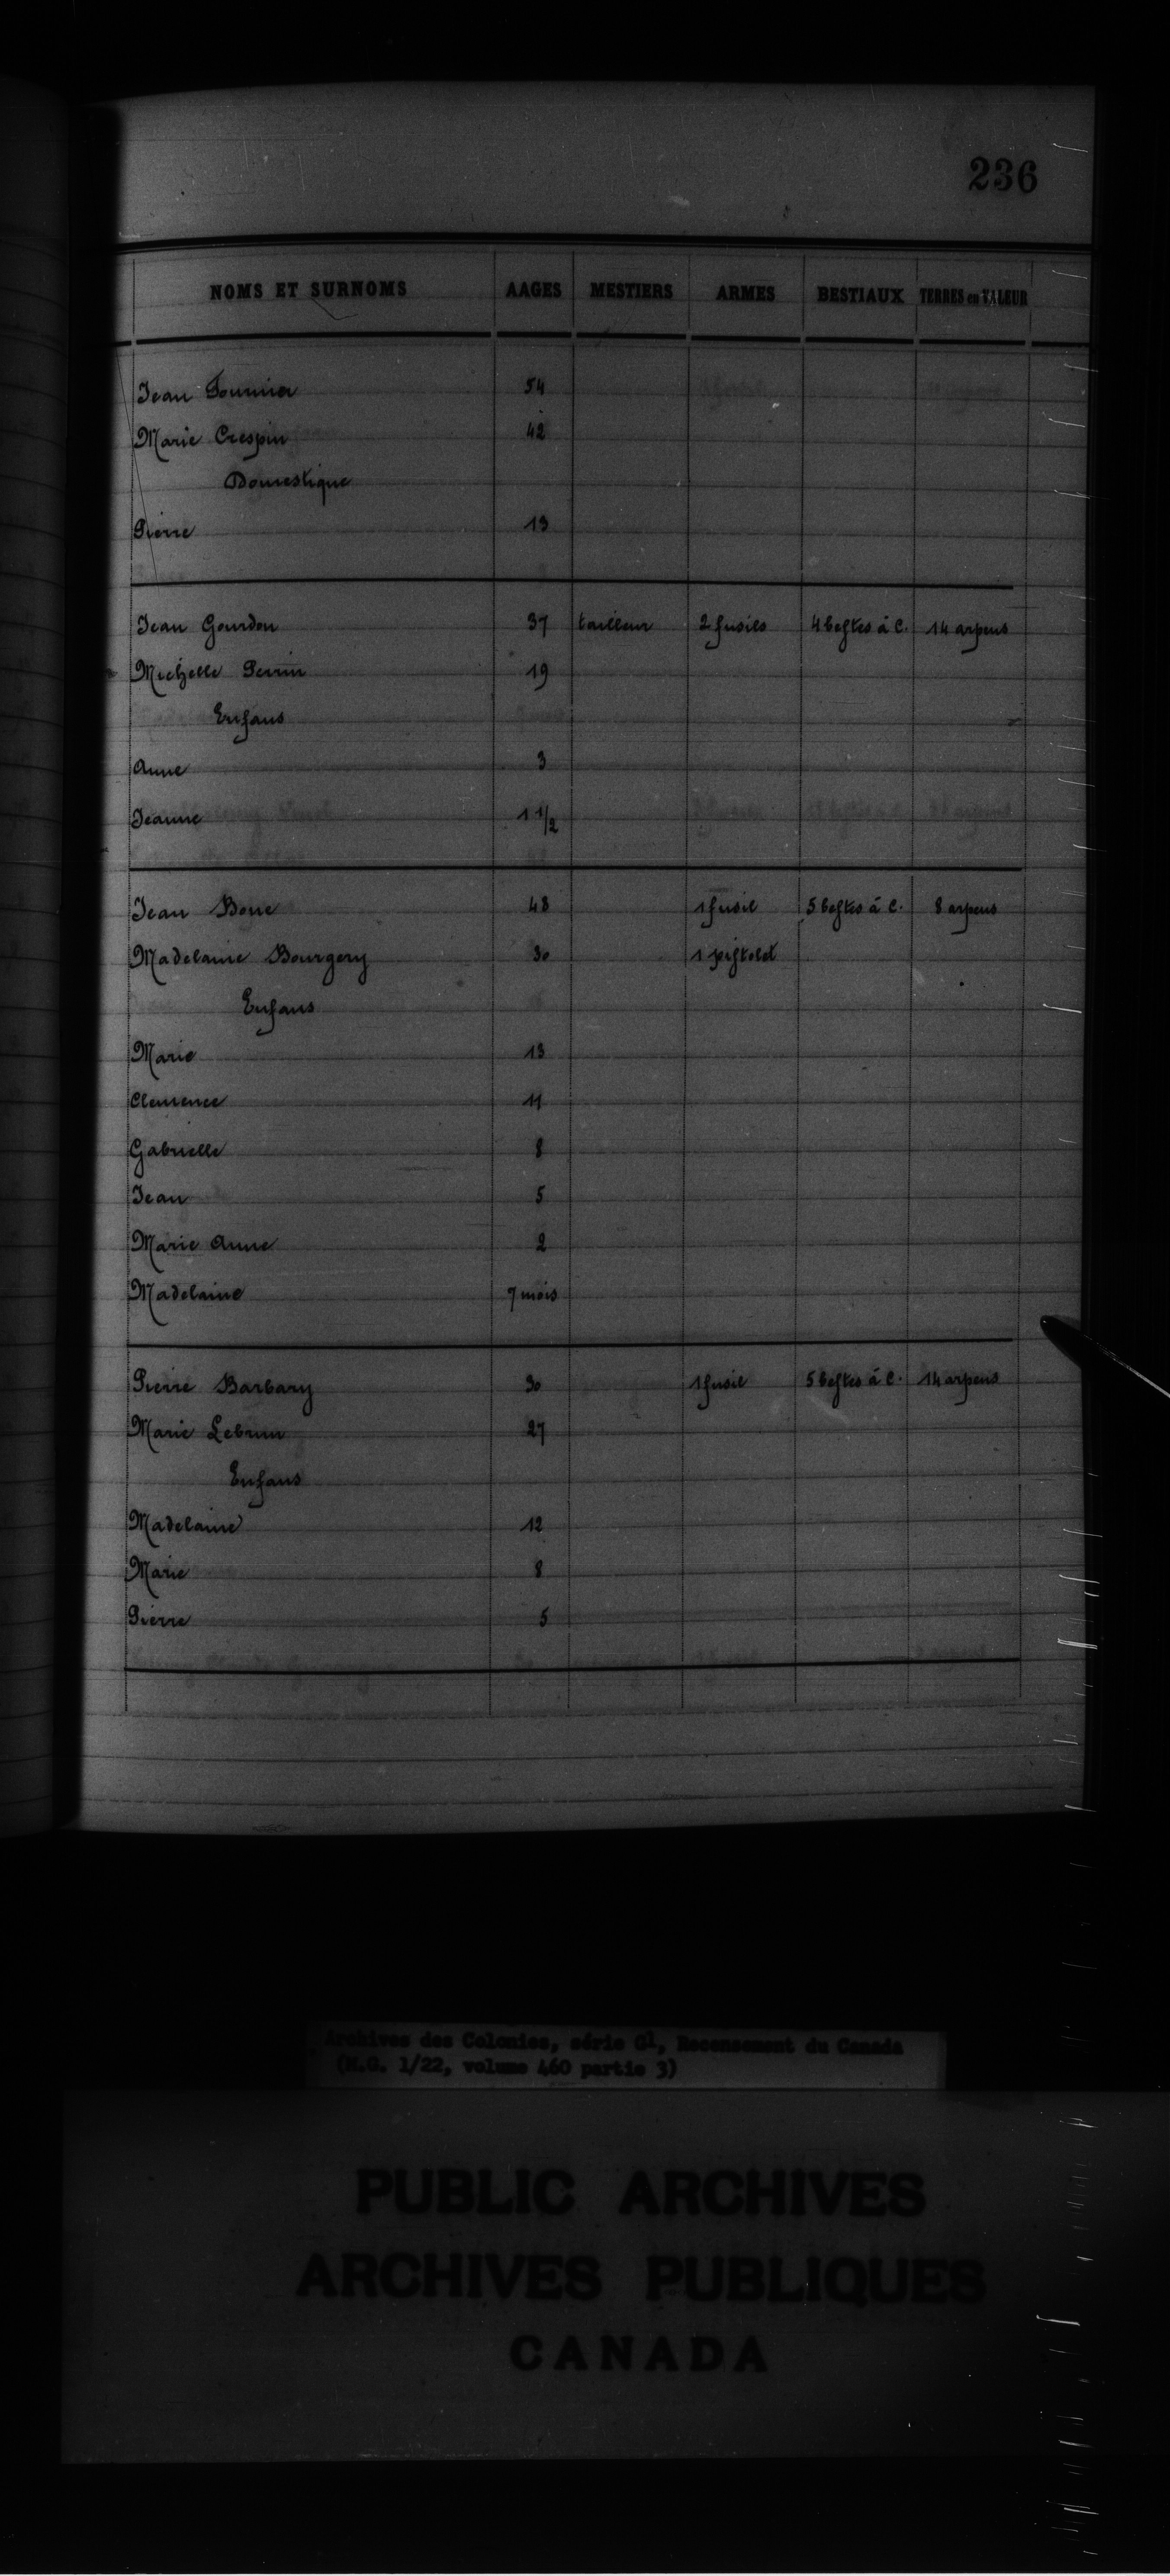 236
NOMS ET SURNOMS AAGES MESTIERS ARMES BESTIAUX TERRES en VALEUR
Jean Fournier 54
Marie Crespin 42
Domestique
Pierre 13
Jean Gourdon 37 tailleur 2 fusils 4 bestes à C. 14 arpens
Michelle Perrin 19
Enfans
Anne 3
Jeanne 1 1/2
Jean Beune 48 1 fusil 5 bestes à C. 8 arpens
Madelaine Bourgery 30 1 pistolet
Enfans
Marie 13
Clemence 11
Gabrielle 8
Jean 5
Marie Anne 2
Madelaine 7 mois
Pierre Barbary 30 1 fusil 5 bestes à C. 14 arpens
Marie Lebrun 27
Enfans
Madelaine 12
Marie 8
Pierre 5
Archives des Colonies, série G1, Recensement du Canada
(M.G. 1/22, volume 460 partie 3)
PUBLIC ARCHIVES
ARCHIVES PUBLIQUES
CANADA